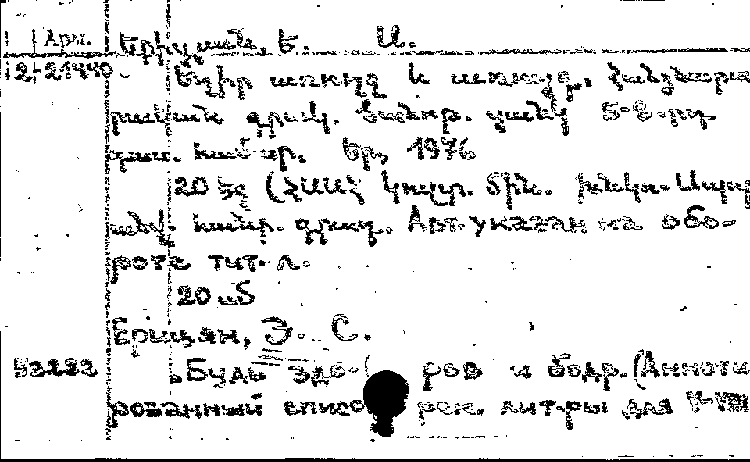 Арм. Երիցյան, Է. Ս.
2-21440 Եղիր առողջ և աշխույժ. Հանձնարա-
րական գրակ. ծանոթ. ցանկ 5-8-րդ
դաս. համար. Եր., 1976
20 էջ (ՀՍՍՀ կուլտ. մին. Խնկո-Ապոր
անվ. հանր. գրադ. Авт. указан на обо-
роте тит. л.
20 мб
Ерицян, Э. С.
53222 "Будь здоров и бодр. (Анноти-
рованный список рек. лит-ры для V-VIII